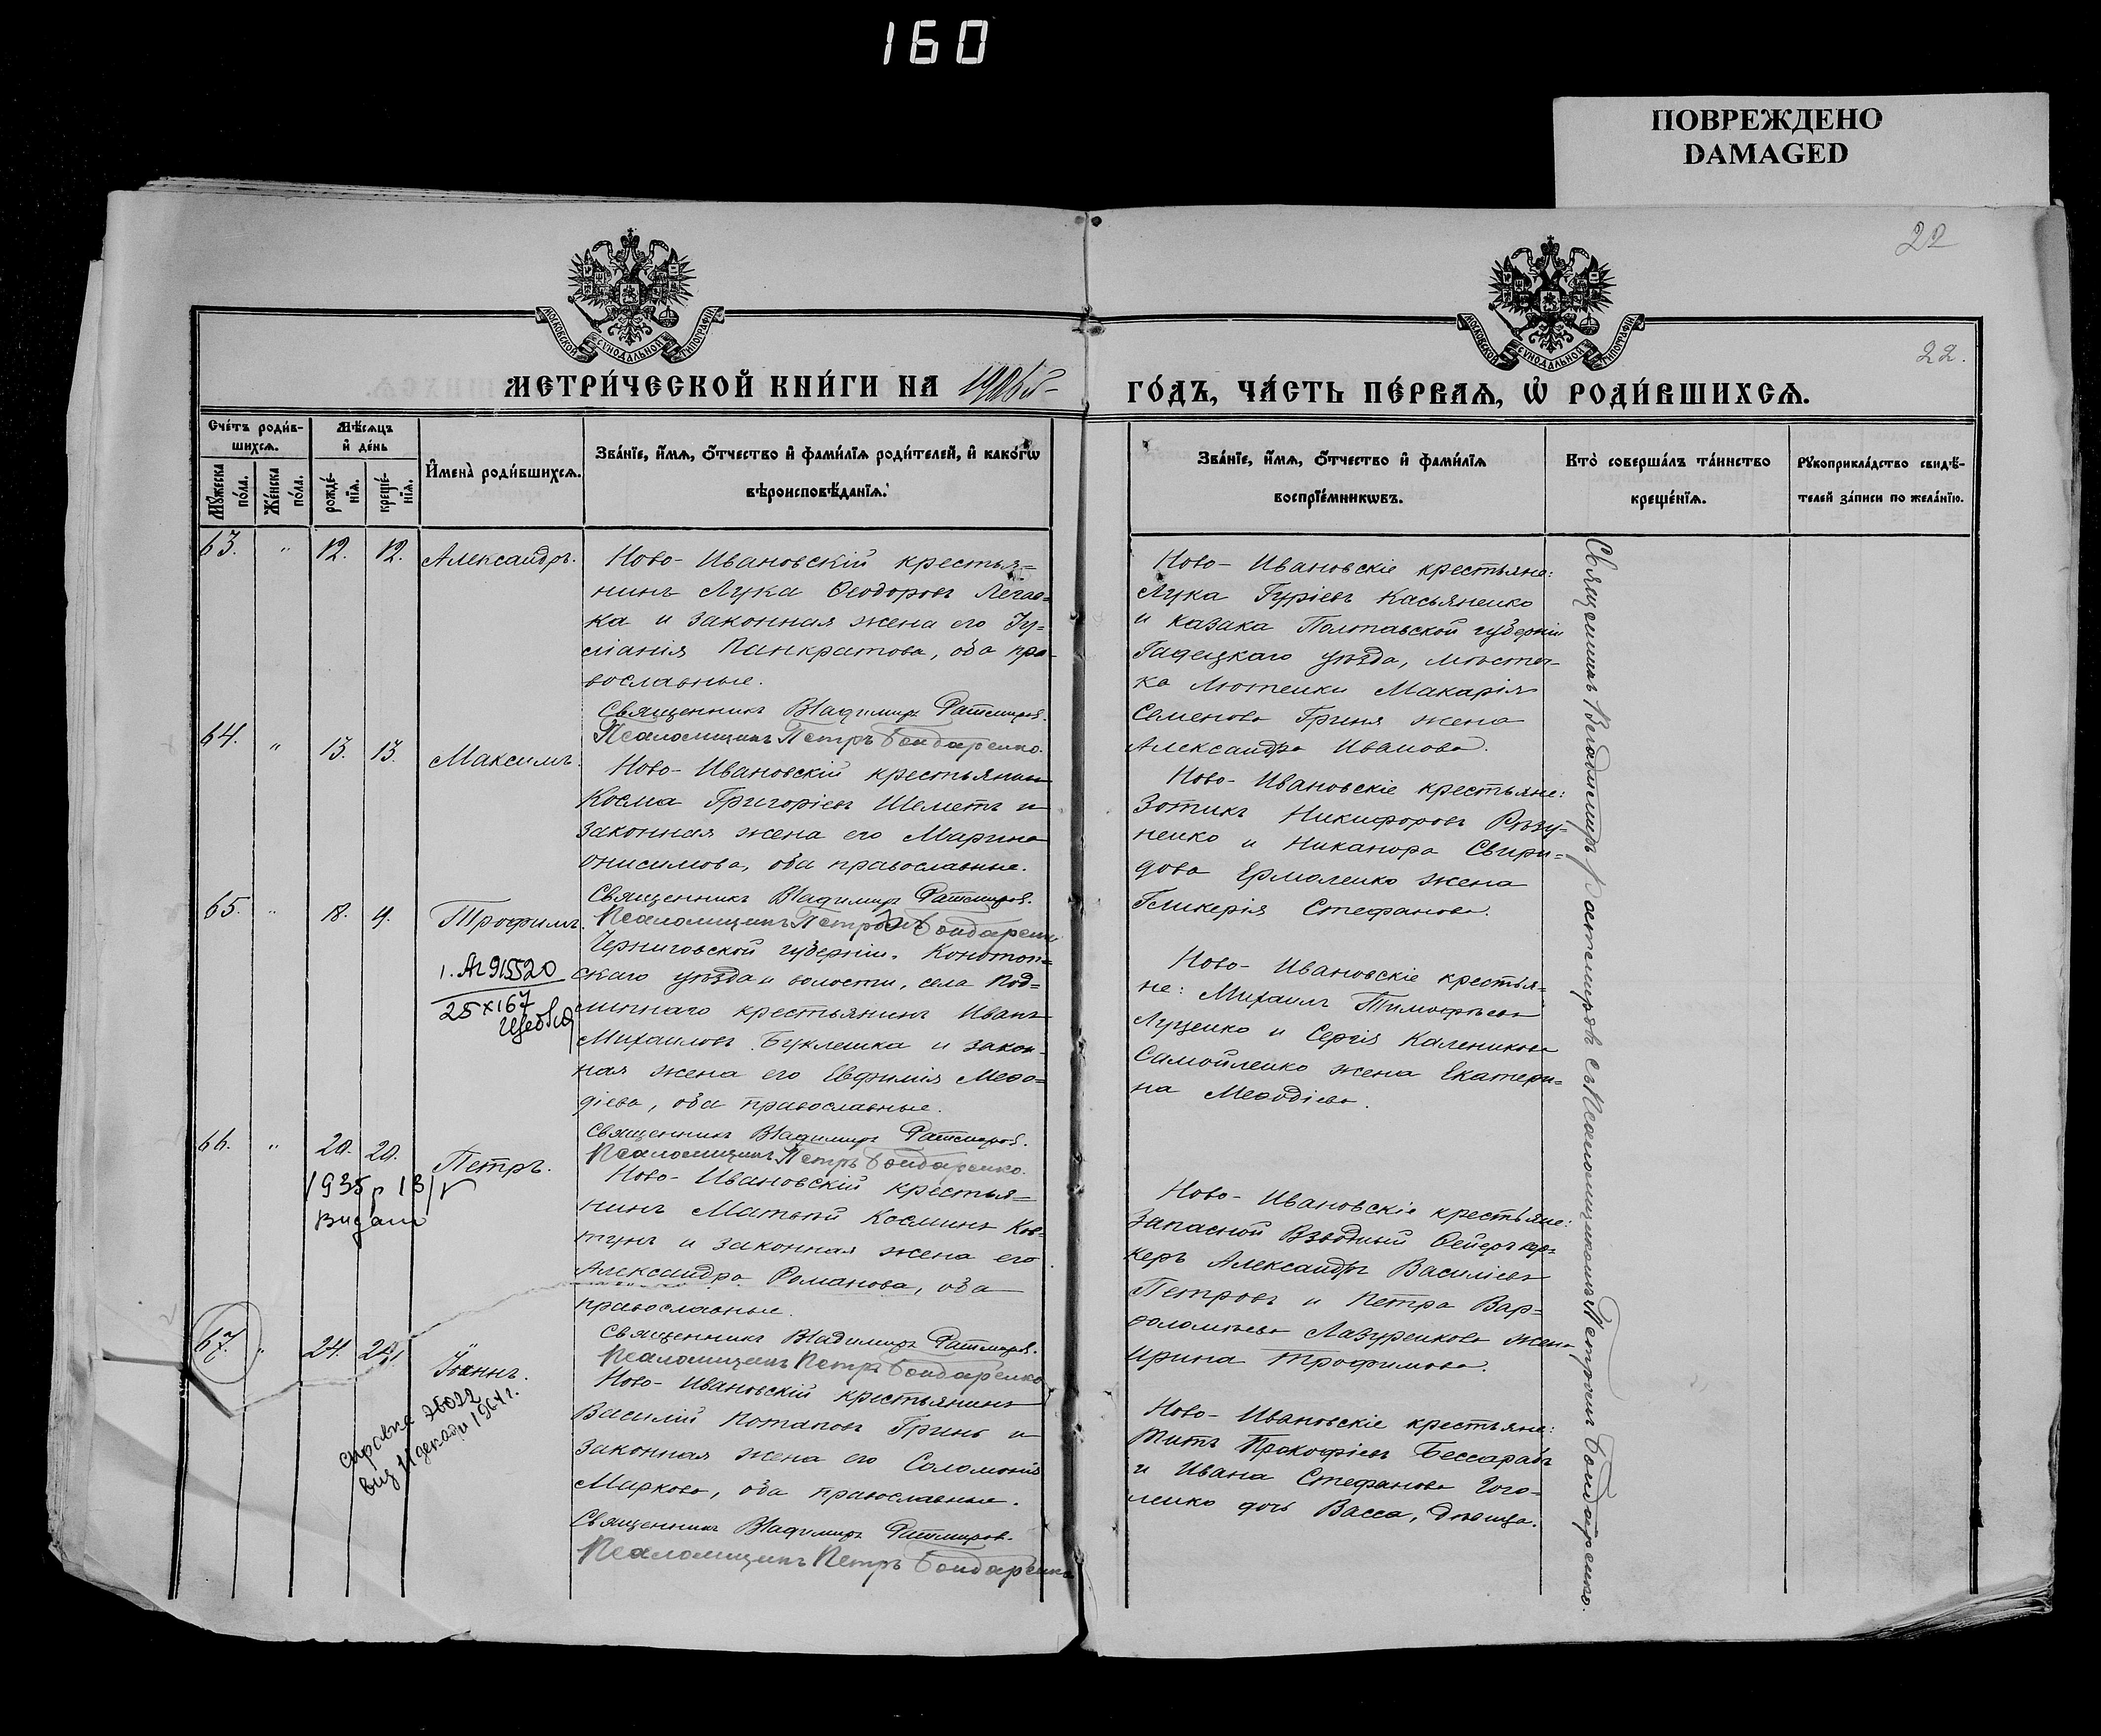 160
ПОВРЕЖДЕНО
DAMAGED
22
22.
МОСКОВСКОЙ СѴНОДАЛЬНОЙ ТИПОГРАФІИ
МОСКОВСКОЙ СѴНОДАЛЬНОЙ ТИПОГРАФІИ
МЕТРИ́ЧЕСКОЙ КНИ́ГИ НА
ГО́ДЪ, ЧА́СТЬ ПЕ́РВАЯ, Ѽ РОДИ́ВШИХСЯ.
Сче́тъ роди́в-
шихсѧ.
Мѣ́сѧцъ
и҆ де́нь
Мꙋ́жеска
по́ла.
Же́нска
по́ла.
рожде́-
нїѧ.
креще́-
нїѧ.
И҆мена̀ роди́вшихсѧ.
Зва́нїе, и҆́мѧ, ѻ҆́тчество и҆ фами́лїѧ роди́телей, и҆ како́гѡ
вѣроисповѣ́данїѧ.
Зва́нїе, и҆́мѧ, ѻ҆́тчество и҆ фами́лїѧ
воспрїе́мникѡвъ.
Кто̀ соверша́лъ та́инство
креще́нїѧ.
Рꙋкоприкла́дство свидѣ́-
телей за́писи по жела́нїю.
63. " 12. 12. Александръ.
Ново-Ивановскій крестья=
нинъ Лука Ѳеодоровъ
ка и законная жена его Іу=
Панкратова, оба пра-
вославные.
Священникъ Владимиръ
Псаломщикъ Петръ Бондаренко.
Ново-Ивановскіе крестьяне:
Лука Гуріевъ Касьяненко
и казака Полтавской губерніи
Гадяцкаго уѣзда, мѣстеч-
ка Лютеньки Макарія
Семенова Гриня жена
Александра Иванова.
64. " 13. 13. Максимъ.
Ново-Ивановскій крестьянинъ
Косма Григоріевъ Шеметъ и
законная жена его Марина
Онисимова, оба православные.
Священникъ Владимиръ
Псаломщикъ Петръ Бондаренко
Ново-Ивановскіе крестьяне:
Зотикъ Никифоровъ Рѣзу-
ненко и Никанора Свири=
дова Ермоленко жена
Гликерія Стефанова.
65. " 18. Трофимъ.
1.
25 X 167
Черниговской губерніи. Конотоп=
скаго уѣзда и волости, села Под=
липнаго крестьянинъ Иванъ
Михаиловъ и закон-
ная жена его Евфимія Меѳо=
діева, оба православные.
Священникъ Владимиръ
Псаломщикъ Петръ Бондаренко.
Ново-Ивановскіе крестья=
не: Михаилъ Тимофѣевъ
Луценко и Сергія Каленикова
Самойленко жена Екатери=
на Меѳодіева.
66. " 20. 20. Петръ.
1935 р 13/V
Видано
Ново-Ивановскій крестья=
нинъ Матѳій Косминъ Ков=
тунъ и законная жена его
Александра Романова, оба
православные.
Священникъ Владимиръ
Псаломщикъ Петръ Бондаренко
Ново-Ивановскіе крестьяне:
Запасной Взводный Фейервер-
керъ Александръ Василіевъ
Петровъ и Петра Вар=
ѳоломѣева Лазуренкова жена
Ирина Трофимова.
67. " 24. Іоаннъ.
справка
1964 г.
Ново-Ивановскій крестьянинъ
Василій Потаповъ Гринь и
законная жена его Соломонія
Маркова, оба православные.
Священникъ Владимиръ
Псаломщикъ Петръ Бондаренко
Ново-Ивановскіе крестьяне:
Титъ Прокофіевъ Бессарабъ
и Ивана Стефанова Гого-
ленко дочь Васса, дѣвица.
Священникъ Владимиръ съ Псаломщикомъ Петромъ Бондаренко.